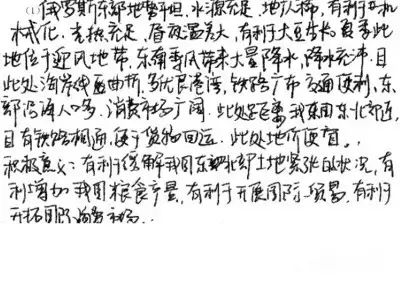 俄罗斯东部地势平坦,水源充足,地广人稀,有利于机
械化。光热充足,昼夜温差大,有利于大豆生长。夏季此
地位于迎风地带,东南季风带来大量降水,降水充沛。且
此处海岸线曲折,多优良港湾,铁路广布,交通便利,东
部沿海人口多,消费市场广阔。此处距离我国东北部近,
且有铁路相连,便于货物回运。此处地价便宜。
积极意义:有利于缓解我国东北部土地紧张的状况,有
利增加我国粮食产量,有利于开展国际贸易,有利于
开拓国际海外市场。